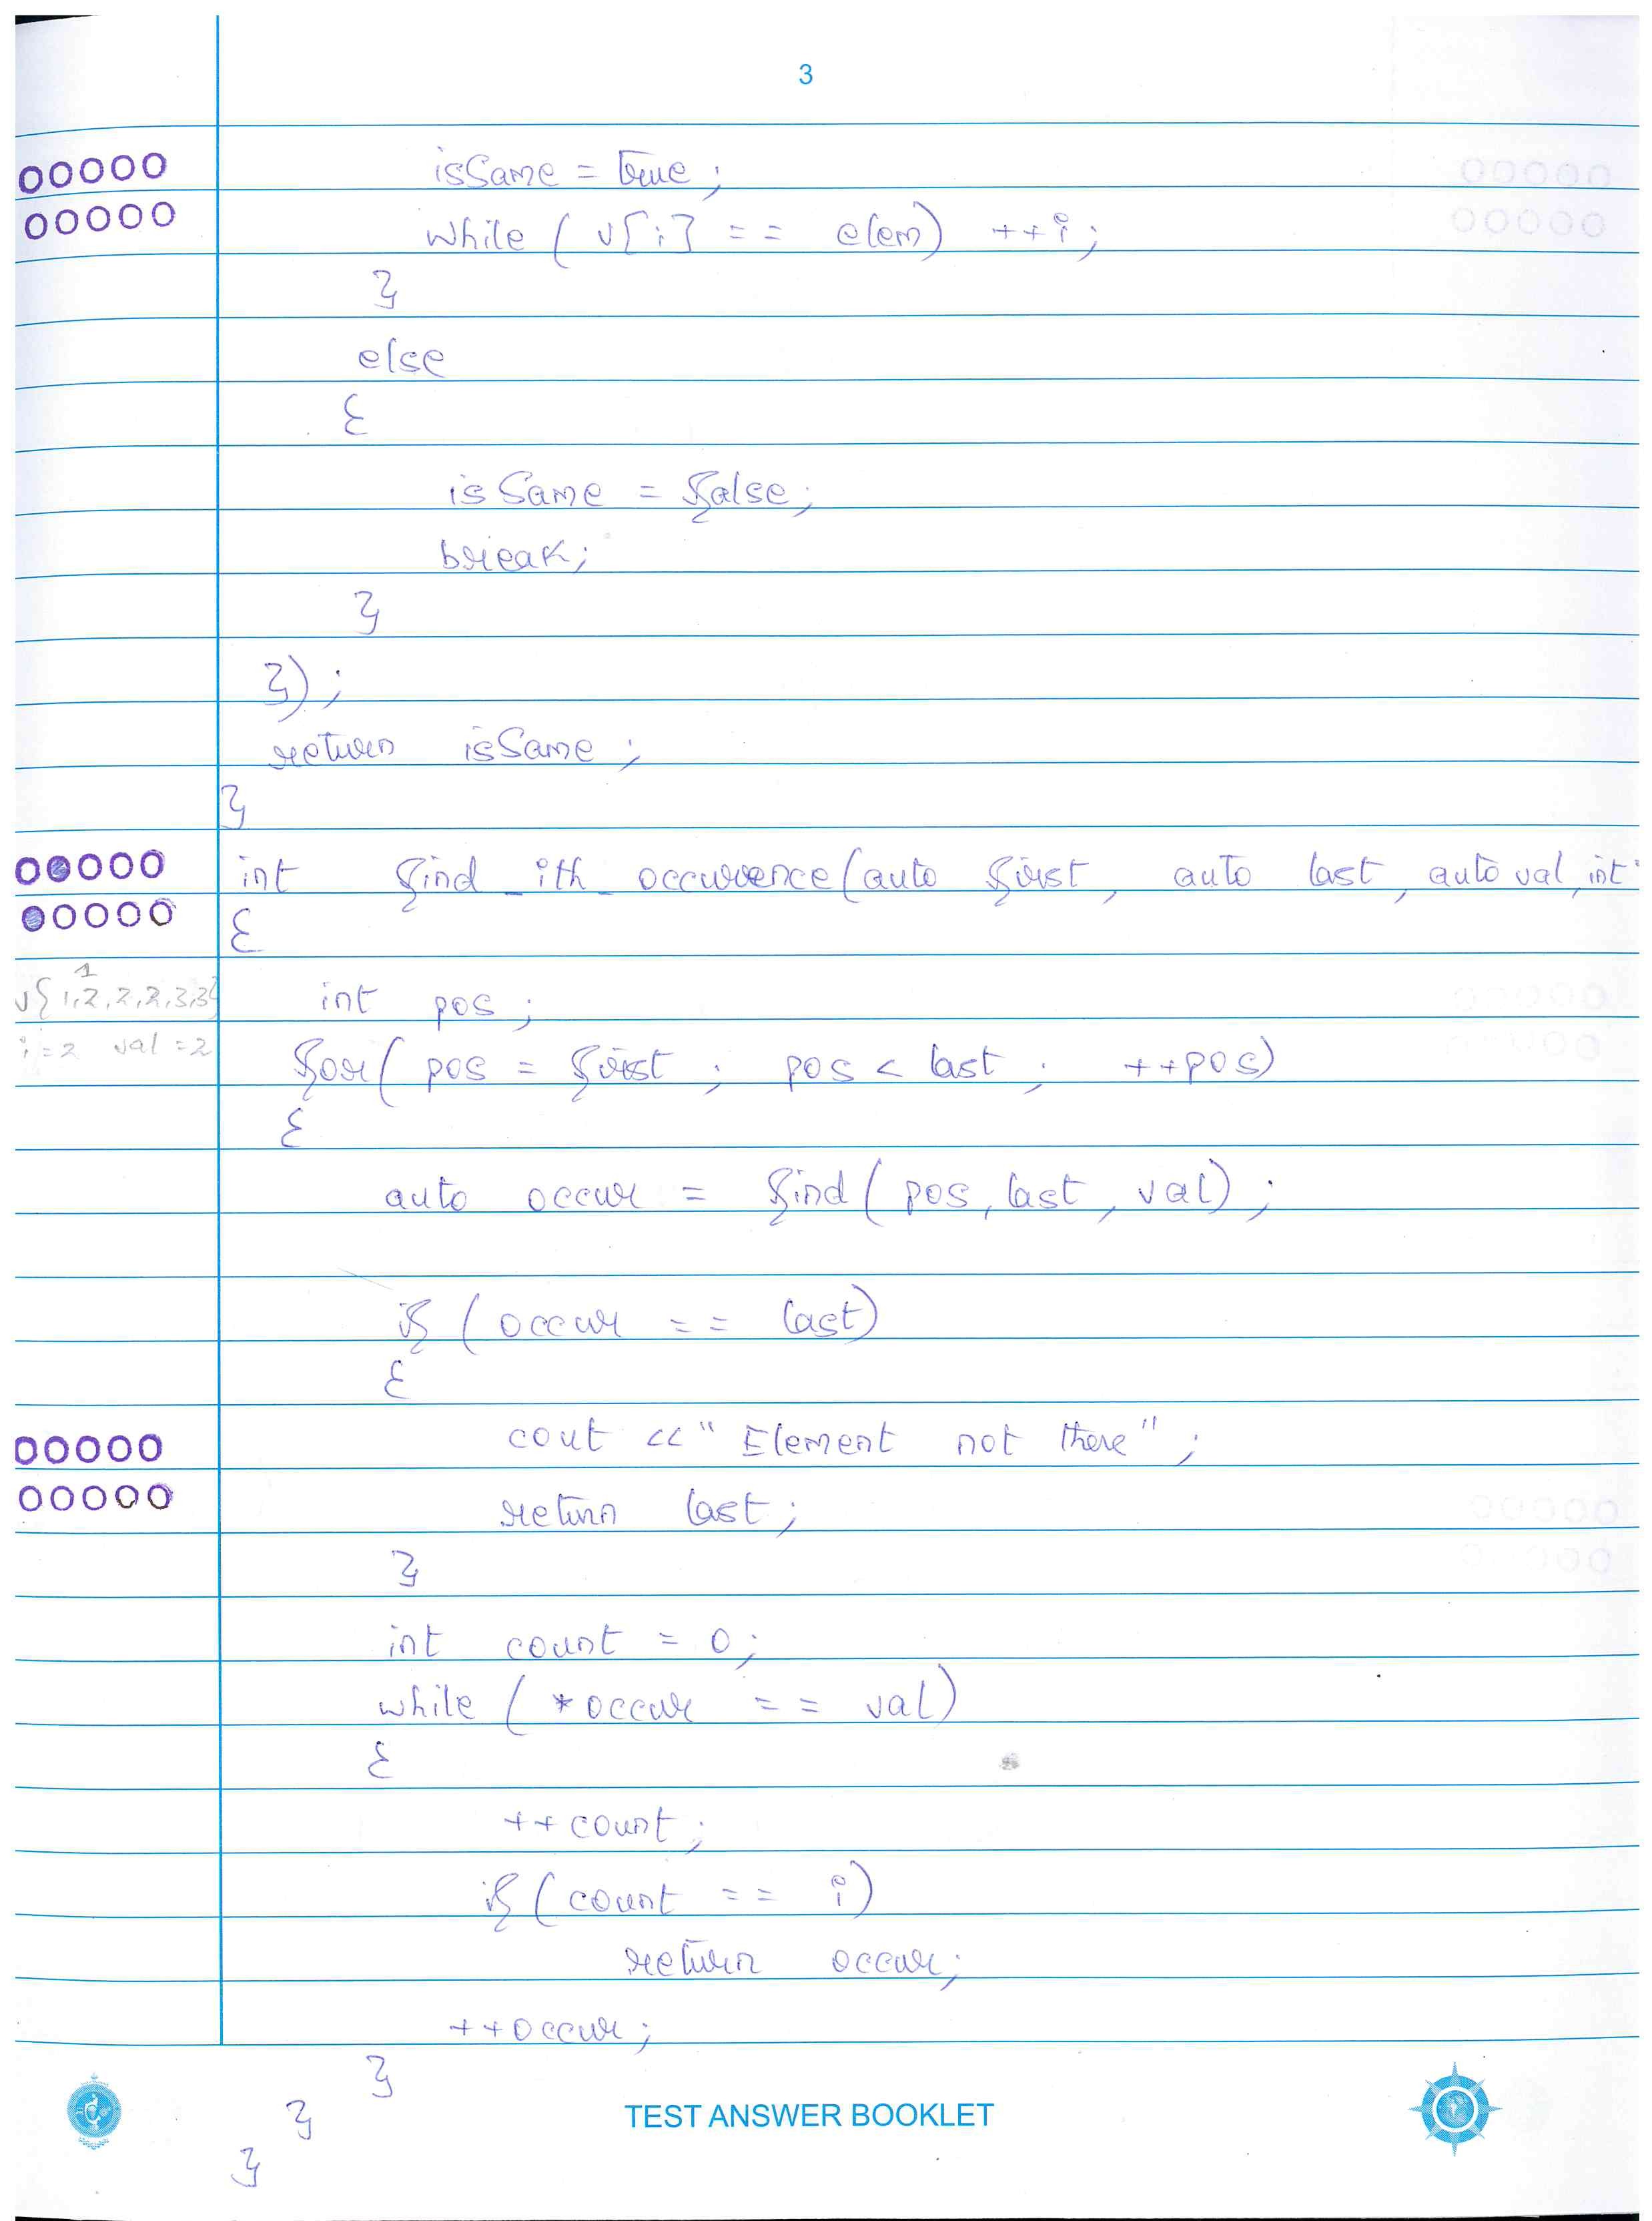 3
isSame = true;
while ( v[i] == elem) ++i;
}
else
{
isSame = false;
break;
}
});
return isSame;
}
int find_ith_occurrence(auto first, auto last, auto val, int
{
v{ 1,2,2,2,3,3}
1
int pos;
i=2 val=2
for( pos = first ; pos < last ; ++pos)
{
auto occur = find( pos, last, val);
if ( occur == last)
{
cout << " Element not there" ;
return last;
}
int count = 0;
while ( *occur == val)
{
++count;
if (count == i)
return occur;
++occur;
}
TEST ANSWER BOOKLET
}
}